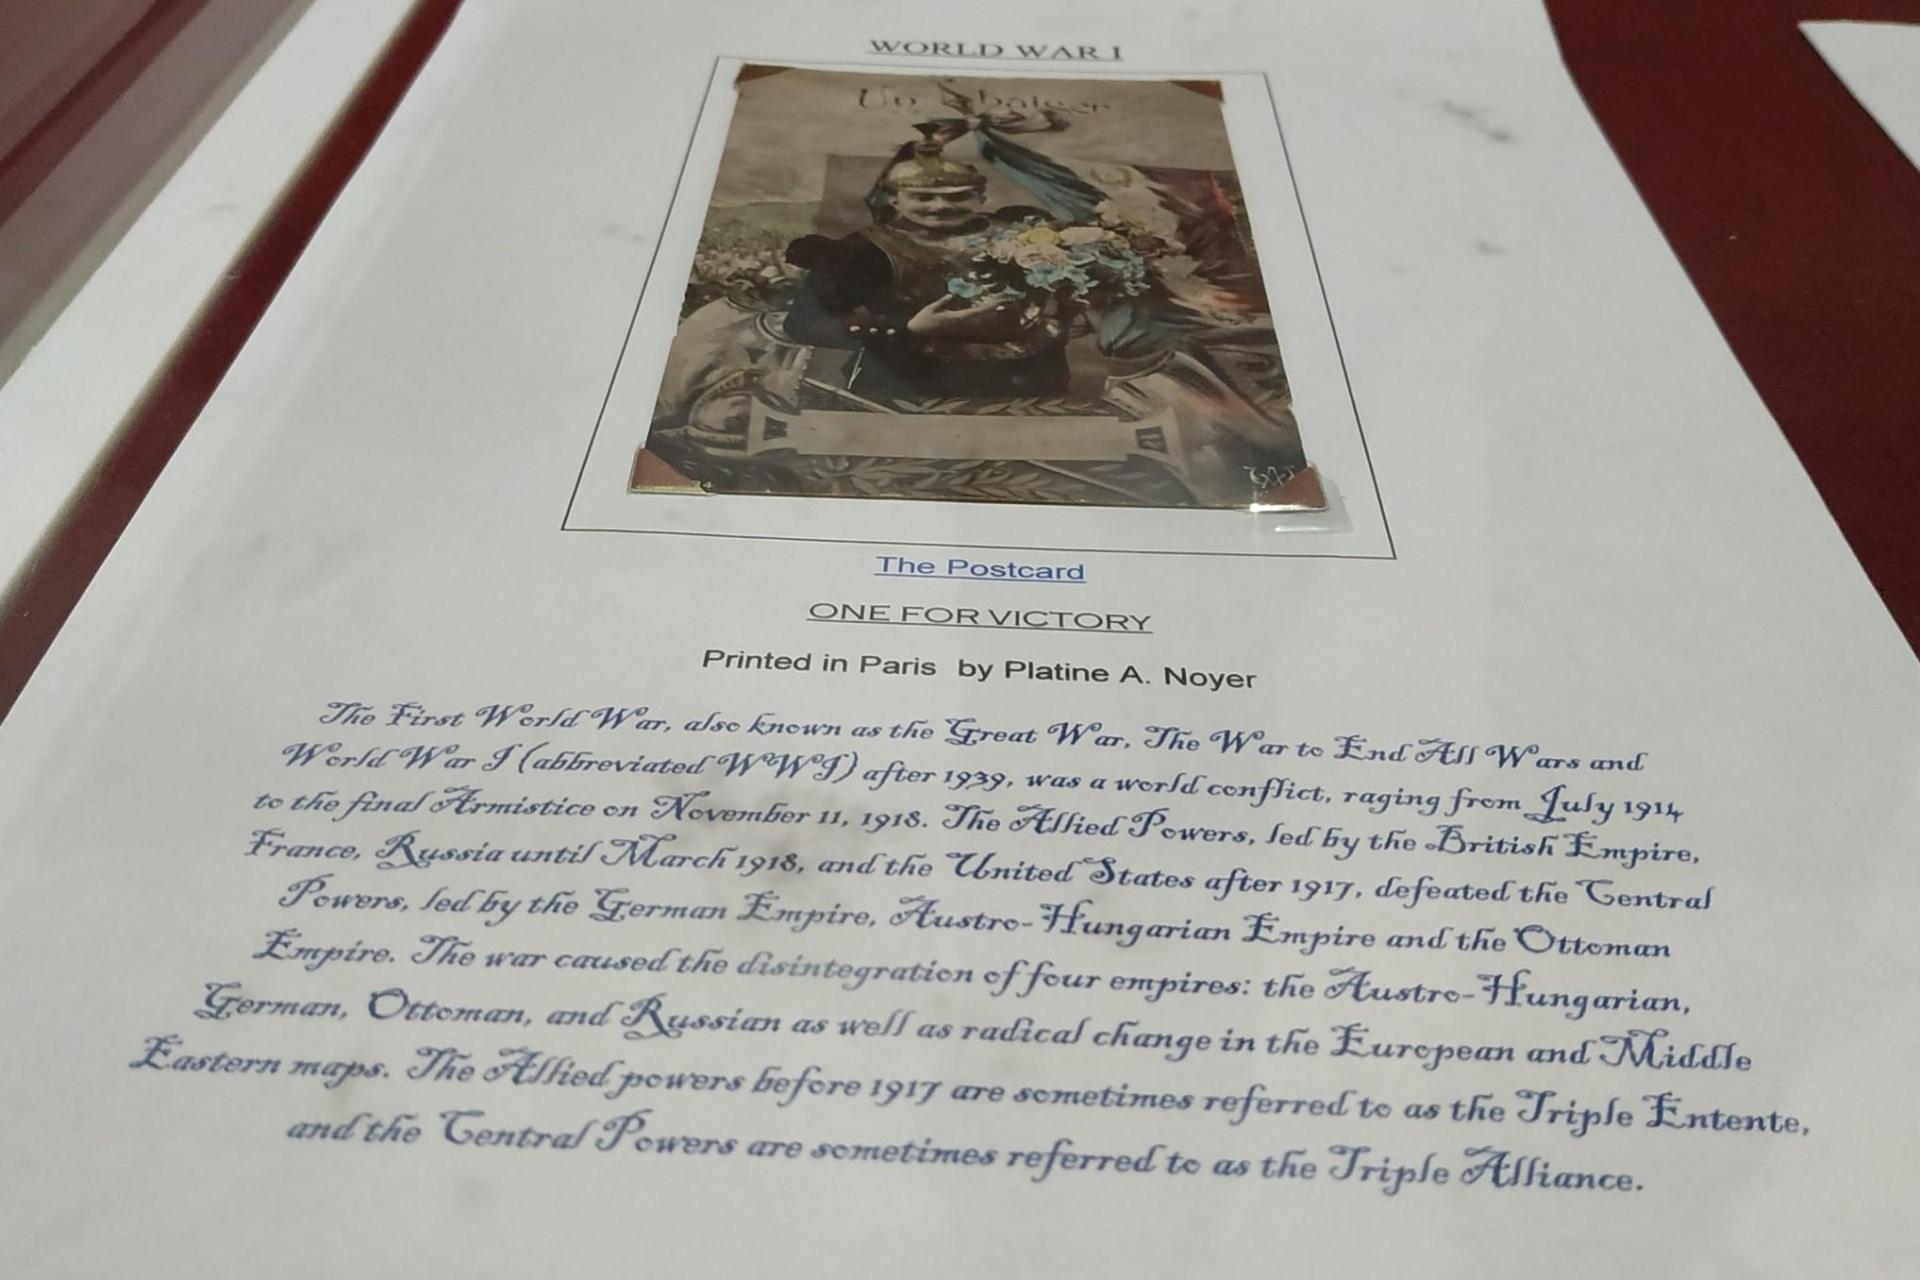 WORLD WAR I
Un baiser
The Postcard
ONE FOR VICTORY
Printed in Paris by Platine A. Noyer
The First World War, also known as the Great War, The War to End All Wars and
World War I (abbreviated WWI) after 1939, was a world conflict, raging from July 1914
to the final Armistice on November 11, 1918. The Allied Powers, led by the British Empire,
France, Russia until March 1918, and the United States after 1917, defeated the Central
Powers, led by the German Empire, Austro-Hungarian Empire and the Ottoman
Empire. The war caused the disintegration of four empires: the Austro-Hungarian,
German, Ottoman, and Russian as well as radical change in the European and Middle
Eastern maps. The Allied powers before 1917 are sometimes referred to as the Triple Entente,
and the Central Powers are sometimes referred to as the Triple Alliance.